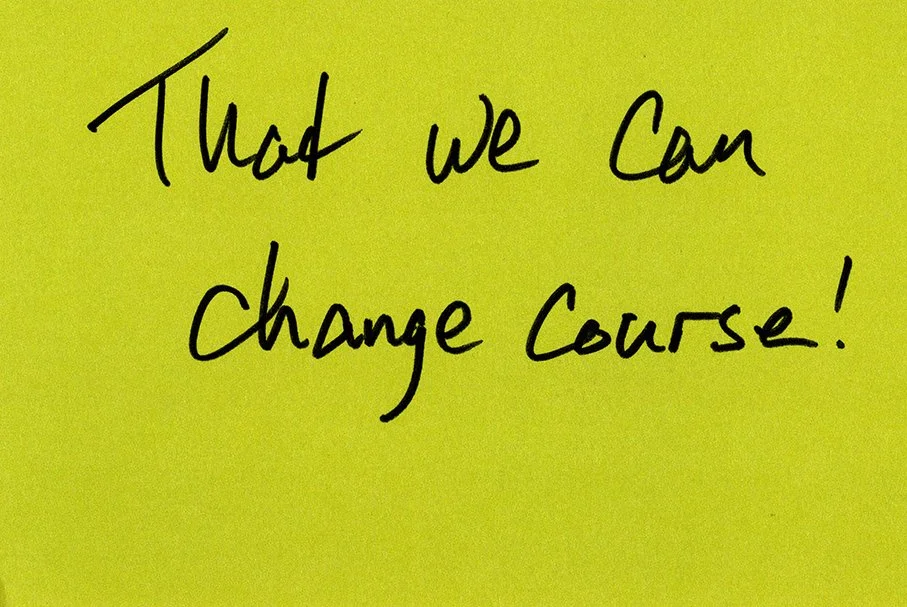 That we can
change course!